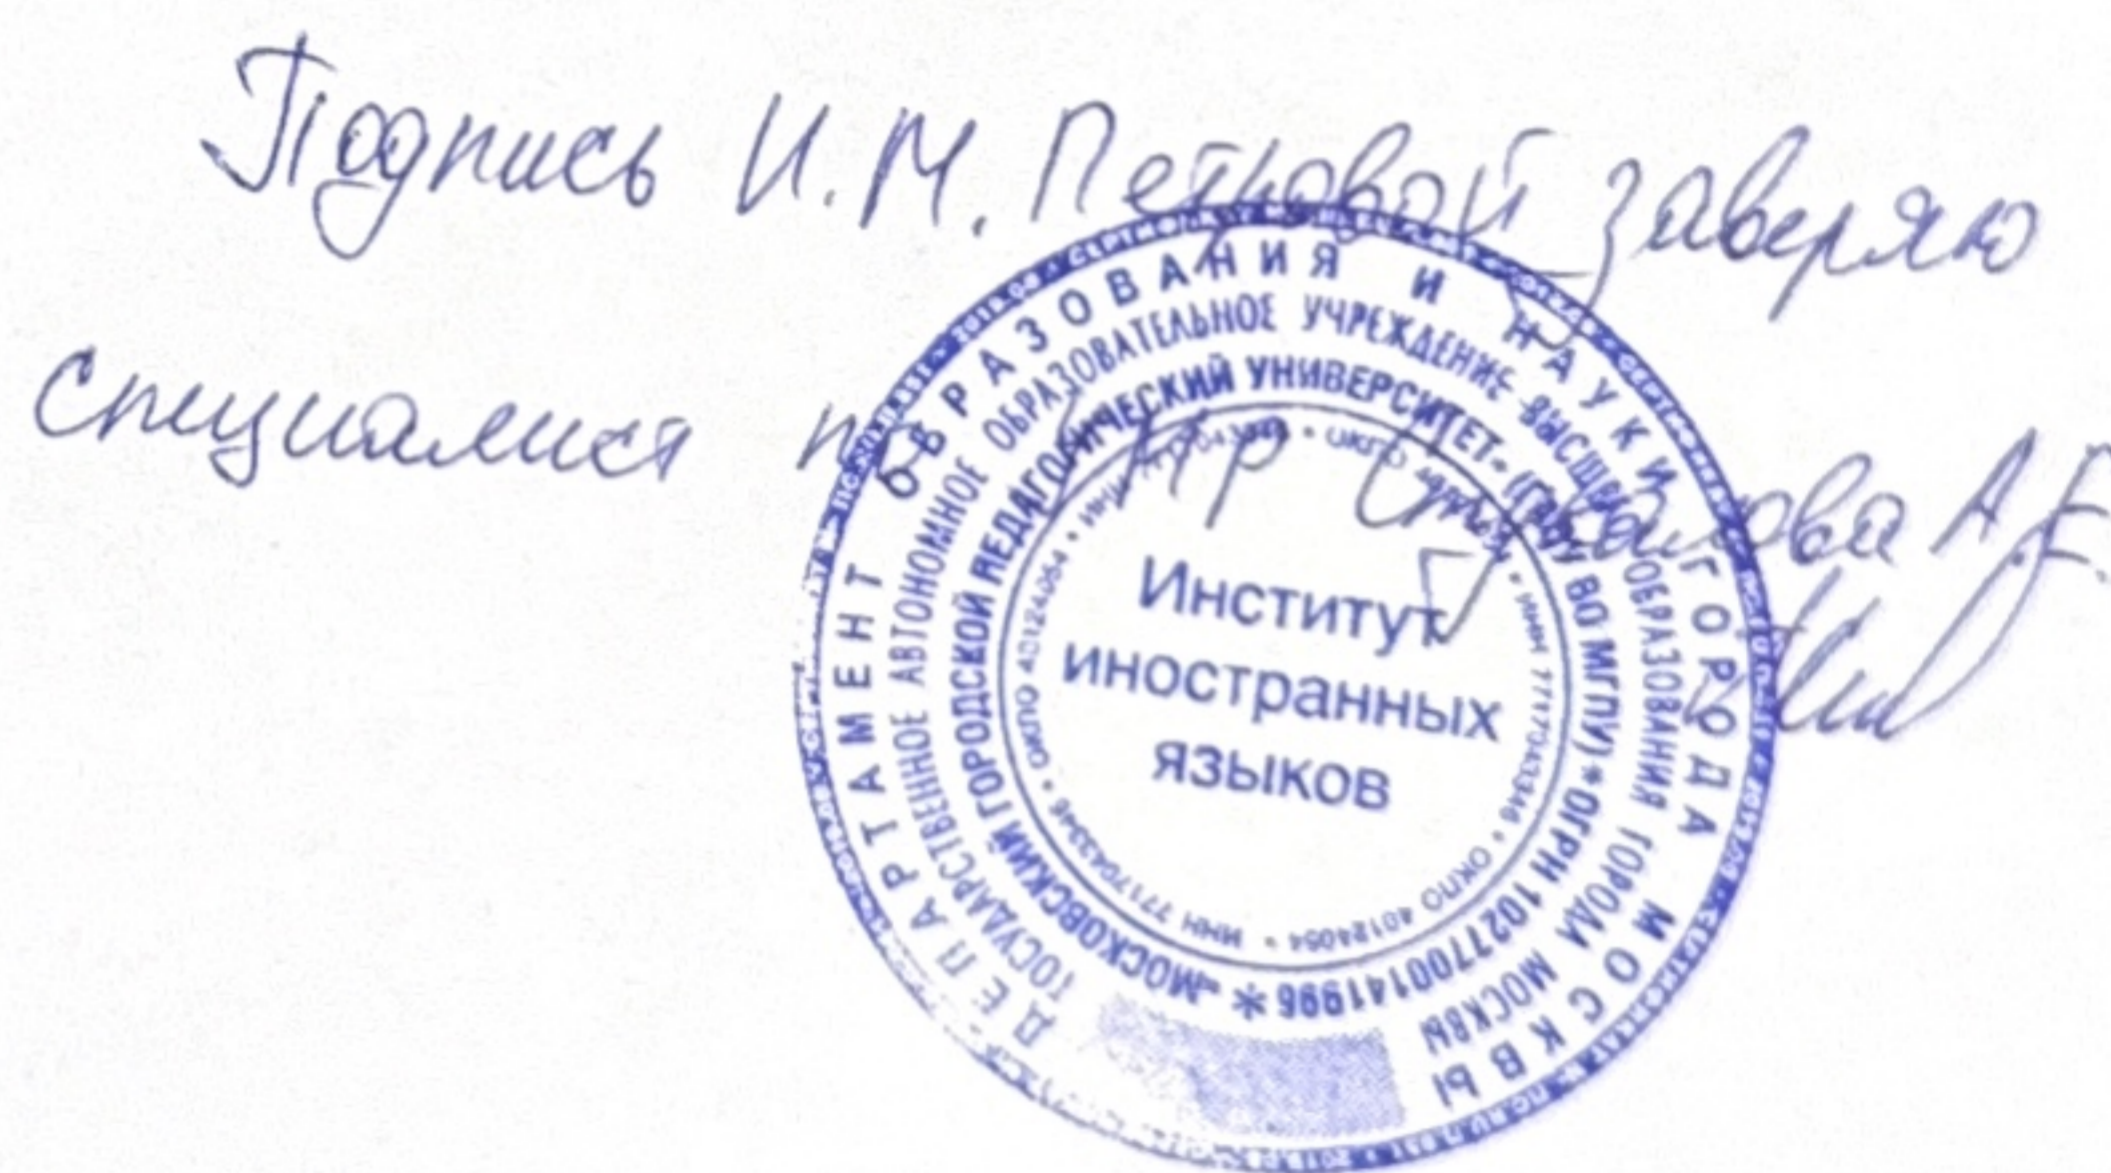 Подпись И.М. Петровой заверяю
специалист по А.Е.
ДЕПАРТАМЕНТ ОБРАЗОВАНИЯ И НАУКИ ГОРОДА МОСКВЫ
ГОСУДАРСТВЕННОЕ АВТОНОМНОЕ ОБРАЗОВАТЕЛЬНОЕ УЧРЕЖДЕНИЕ ВЫСШЕГО ОБРАЗОВАНИЯ ГОРОДА МОСКВЫ
«МОСКОВСКИЙ ГОРОДСКОЙ ПЕДАГОГИЧЕСКИЙ УНИВЕРСИТЕТ» (ГАОУ ВО МГПУ) * ОГРН 1027700141996 *
ИНН 7717043346 • ОКПО 40124054 • ИНН 7717043346 • ОКПО 40124054
Институт
иностранных
языков